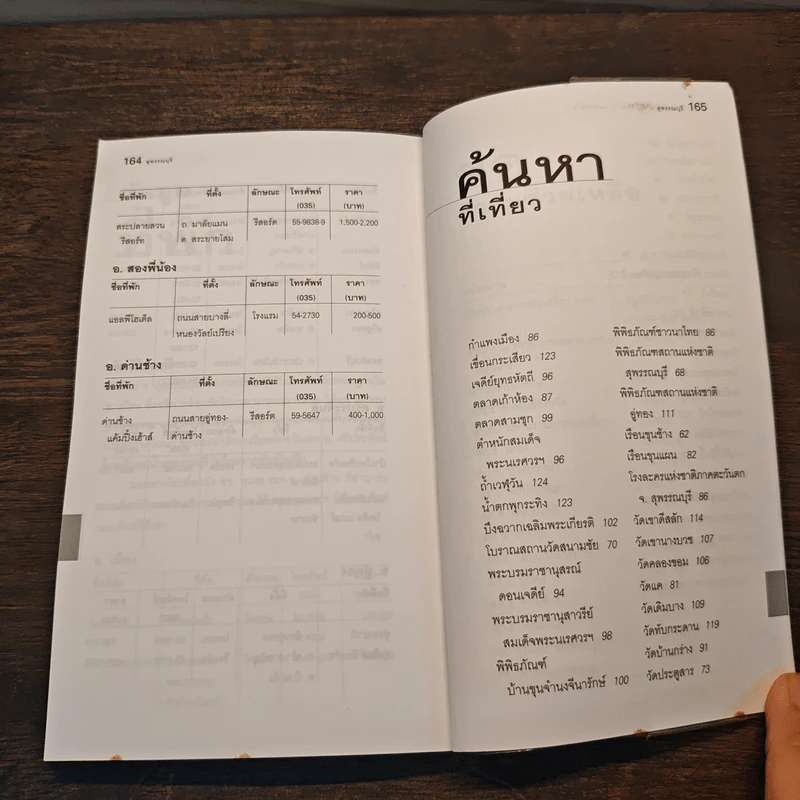 164 สุพรรณบุรี
ชื่อที่พัก ที่ตั้ง ลักษณะ โทรศัพท์ ราคา
(035) (บาท)
สระปลายสวน ถ. มาลัยแมน รีสอร์ต 55-9838-9 1,500-2,200
รีสอร์ท ต. สระยายโสม
อ. สองพี่น้อง
ชื่อที่พัก ที่ตั้ง ลักษณะ โทรศัพท์ ราคา
(035) (บาท)
แอลพีโฮเต็ล ถนนสายบางลี่- โรงแรม 54-2730 200-500
หนองวัลย์เปรียง
อ. ด่านช้าง
ชื่อที่พัก ที่ตั้ง ลักษณะ โทรศัพท์ ราคา
(035) (บาท)
ด่านช้าง ถนนสายอู่ทอง- รีสอร์ต 59-5647 400-1,000
แค้มปิ้งเฮ้าส์ ด่านช้าง
สุพรรณบุรี 165
ค้นหา
ที่เที่ยว
กำแพงเมือง 86
เขื่อนกระเสียว 123
เจดีย์ยุทธหัตถี 96
ตลาดเก้าห้อง 87
ตลาดสามชุก 99
ตำหนักสมเด็จ
พระนเรศวรฯ 96
ถ้ำเวฬุวัน 124
น้ำตกพุกระทิง 123
บึงฉวากเฉลิมพระเกียรติ 102
โบราณสถานวัดสนามชัย 70
พระบรมราชานุสรณ์
ดอนเจดีย์ 94
พระบรมราชานุสาวรีย์
สมเด็จพระนเรศวรฯ 98
พิพิธภัณฑ์
บ้านขุนจำนงจีนารักษ์ 100
พิพิธภัณฑ์ชาวนาไทย 86
พิพิธภัณฑสถานแห่งชาติ
สุพรรณบุรี 68
พิพิธภัณฑสถานแห่งชาติ
อู่ทอง 111
เรือนขุนช้าง 62
เรือนขุนแผน 82
โรงละครแห่งชาติภาคตะวันตก
จ. สุพรรณบุรี 86
วัดเขาดีสลัก 114
วัดเขานางบวช 107
วัดคลองขอม 106
วัดแค 81
วัดเดิมบาง 109
วัดทับกระดาน 119
วัดบ้านกร่าง 91
วัดประตูสาร 73